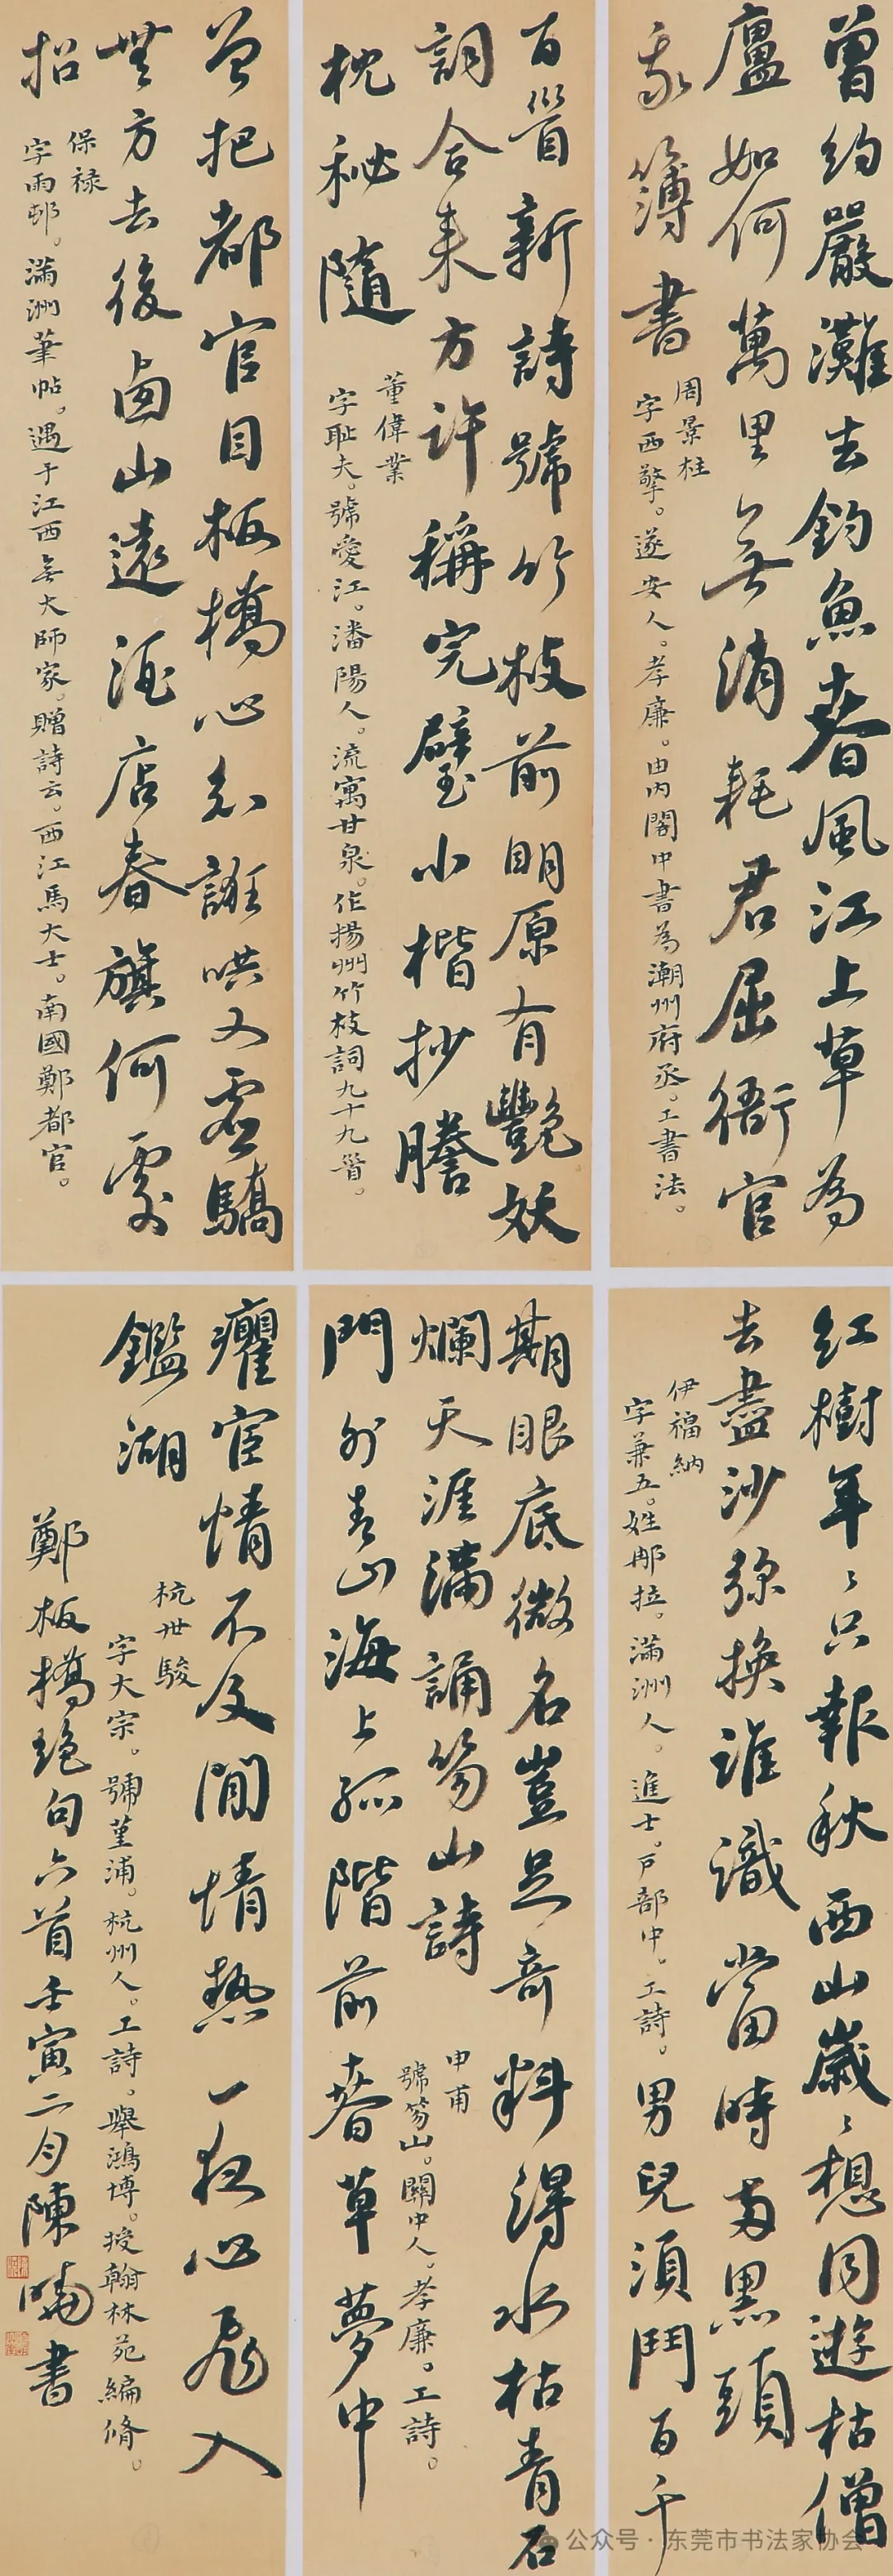 曾約嚴灘去釣魚春風江上草為
廬如何萬里無消耗君屈衙官
我簿書
周景柱
字西擎。遂安人。孝廉。由内閣中書為潮州府丞。工書法。
百首新詩號竹枝前明原有艷妖
詞合来方許稱完璧小楷抄謄
枕秘隨
董偉業
字耻夫。號愛江。瀋陽人。流寓甘泉。作揚州竹枝詞九十九首。
曾把都官目板橋心知誑哄又虚驕
無方去後西山遠酒店春旗何處
招
保禄
字雨邨。滿洲筆帖。遇于江西無大師家。贈詩云。西江馬大士。南國鄭都官。
紅樹年々只報秋西山歲々想同遊枯僧
去盡沙彌換誰識當時兩黑頭
伊福納
字兼五。姓那拉。滿洲人。進士。户部中。工詩。
男兒須鬥百千
期眼底微名豈足奇料得水枯青石
爛天涯滿誦笏山詩
申甫
號笏山。關中人。孝廉。工詩。
門外青山海上孤階前春草夢中
癯宦情不及閒情熱一夜心飛入
鑑湖
杭世駿
字大宗。號堇浦。杭州人。工詩。舉鴻博。授翰林苑編脩。
鄭板橋絶句六首壬寅二月陳書
公众号·东莞市书法家协会